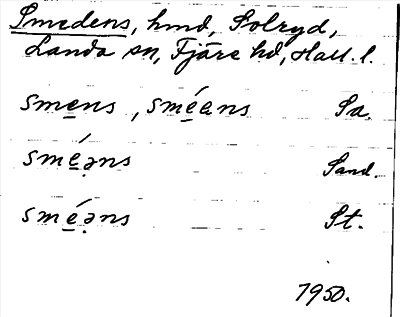 Smedens, hmd, Solryd,
Landa sn, Fjäre hd, Hall. l.
smens, sméans Sa.
sméəns Sand.
sméəns St.
1950.